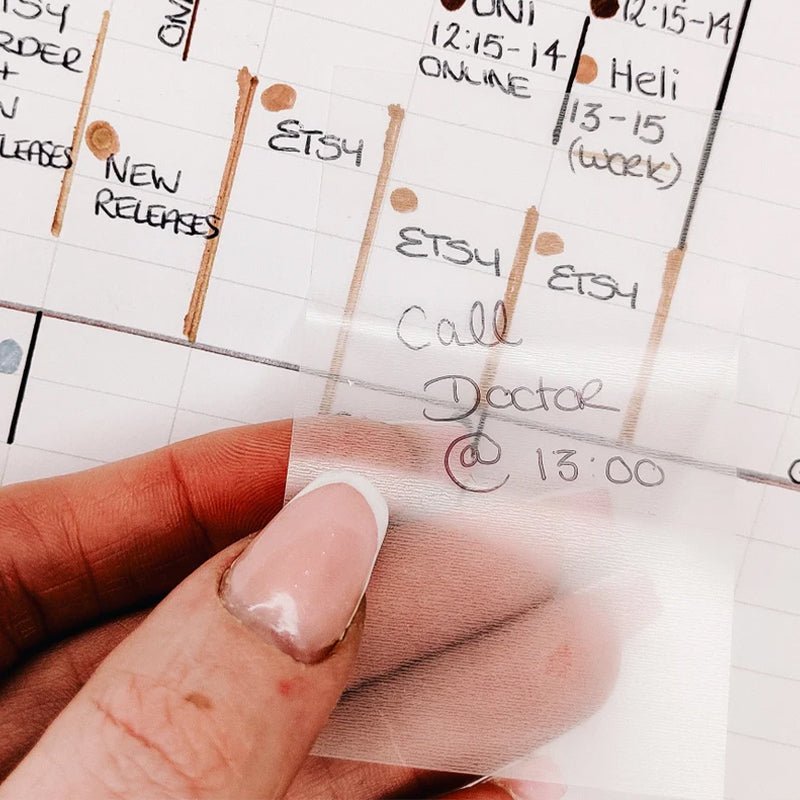 RDER
+
NEW
RELEASES
ETSY
UNI
12:15-14
ONLINE
12:15-14
Heli
13-15
(WORK)
ETSY
ETSY
Call
Doctor
@ 13:00